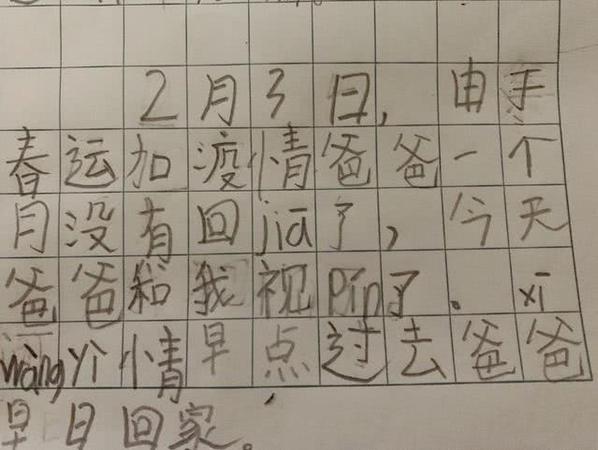 2月3日,由手
春运加疫情爸爸一个
月没有回jiā了,今天
爸爸和我视Pín了。xī
wàng yì情早点过去,爸爸
早日回家。